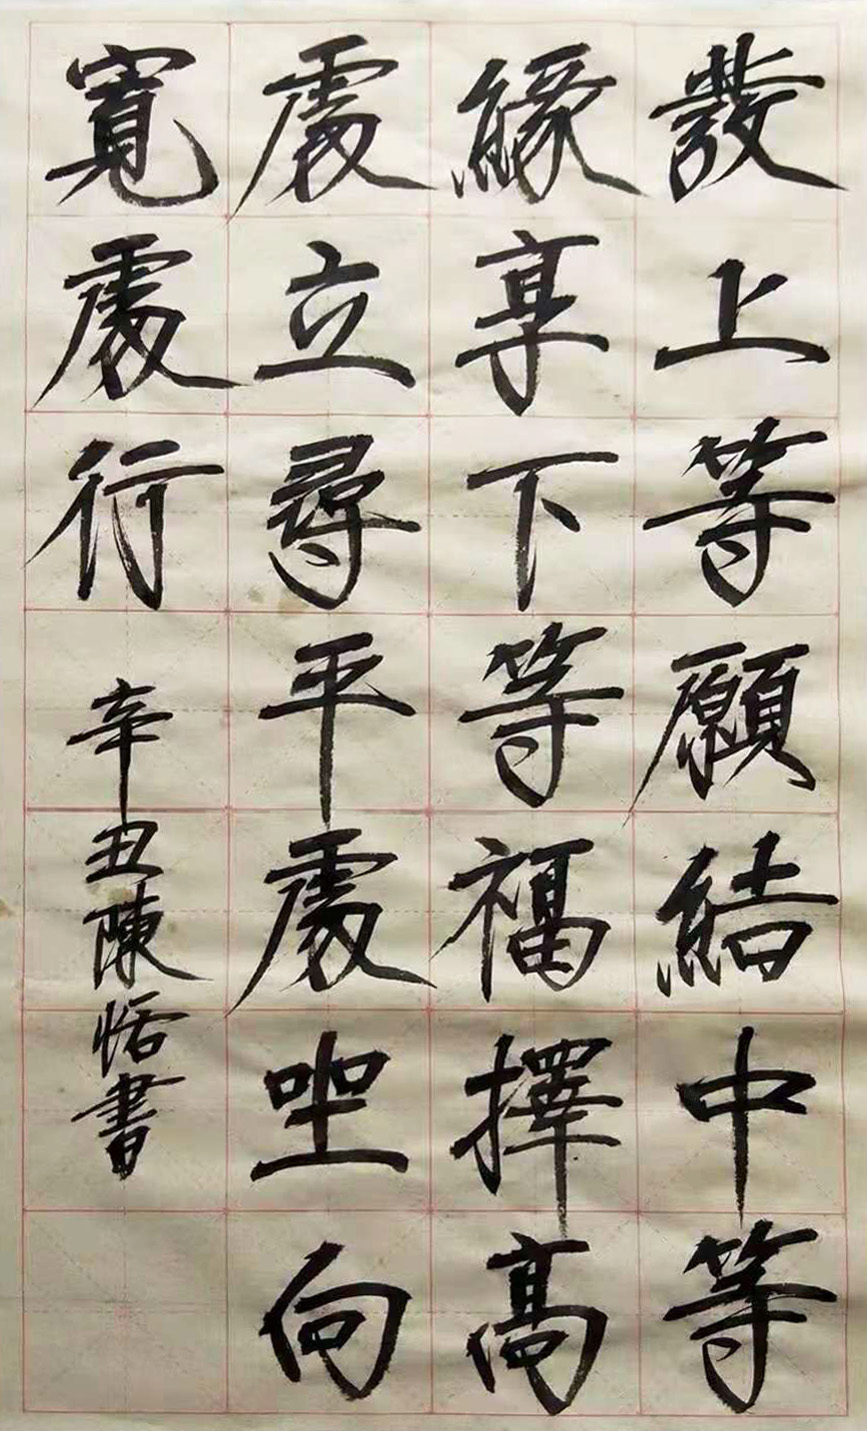 發上等願結中等
緣享下等福擇高
處立尋平處坐向
寬處行
辛丑陳恬書